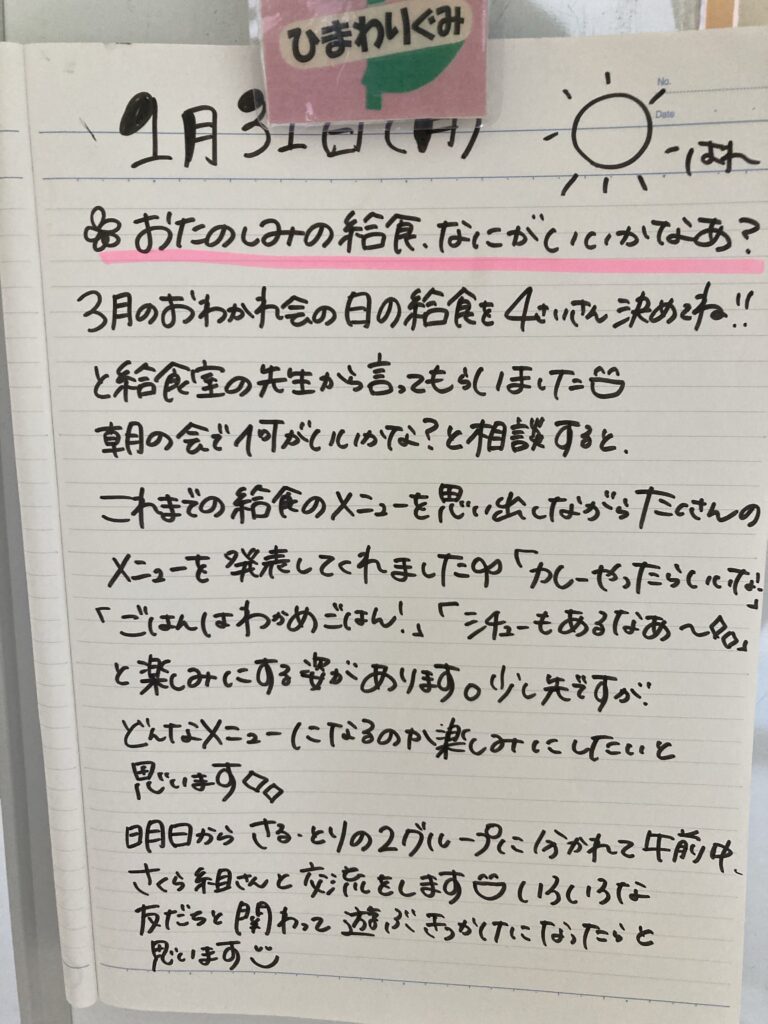 ひまわりぐみ
1月31日(月)
No.
Date
はれ
おたのしみの給食、なにがいいかなあ?
3月のおわかれ会の日の給食を4さいさん決めてね!!
と給食室の先生から言ってもらいました
朝の会で何がいいかな?と相談すると、
これまでの給食のメニューを思い出しながらたくさんの
メニューを発表してくれました「カレーやったらいいな」
「ごはんはわかめごはん!」「シチューもあるなあ〜」
と楽しみにする姿があります。少し先ですが
どんなメニューになるのか楽しみにしたいと
思います
明日からさる・とりの2グループに分かれて午前中、
さくら組さんと交流をします いろいろな
友だちと関わって遊ぶきっかけになったらと
思います